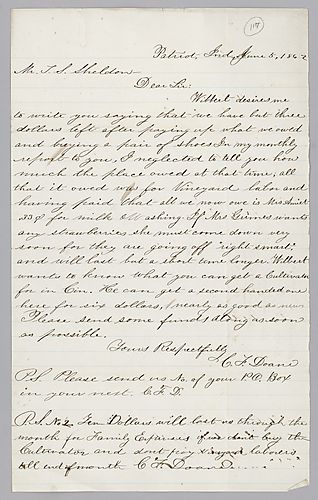 117
Patriot, Ind, June 5, 1862
Mr. T. S. Sheldon
Dear Sir:
Wilbert desires me
to write you saying that we have but three
dollars left after paying up what we owed
and buying a pair of shoes In my monthly
report to you, I neglected to tell you how
much the place owed at that time, all
that it owed was for Vineyard labor and
having paid that all we now owe is Mrs
33¢ for milk & Washing. If Mrs wants
any strawberries she must come down very
soon for they are going off "right smart,"
and will last but a short time longer. Wilbert
wants to know what you can get a Cultivator
for in Cin. He can get a second handed one
here for six dollars, (nearly as good as new
Please send some funds along as soon
as possible.
Yours Respectfully
C. F. Doane
P.S. Please send us No. of your P.O. Box
in your next. C. F. D.
P.S. No 2 Ten Dollars will last us through the
month for Family Expenses if we don't buy the
Cultivator and don't pay laborers
till end of month C. F. Doane